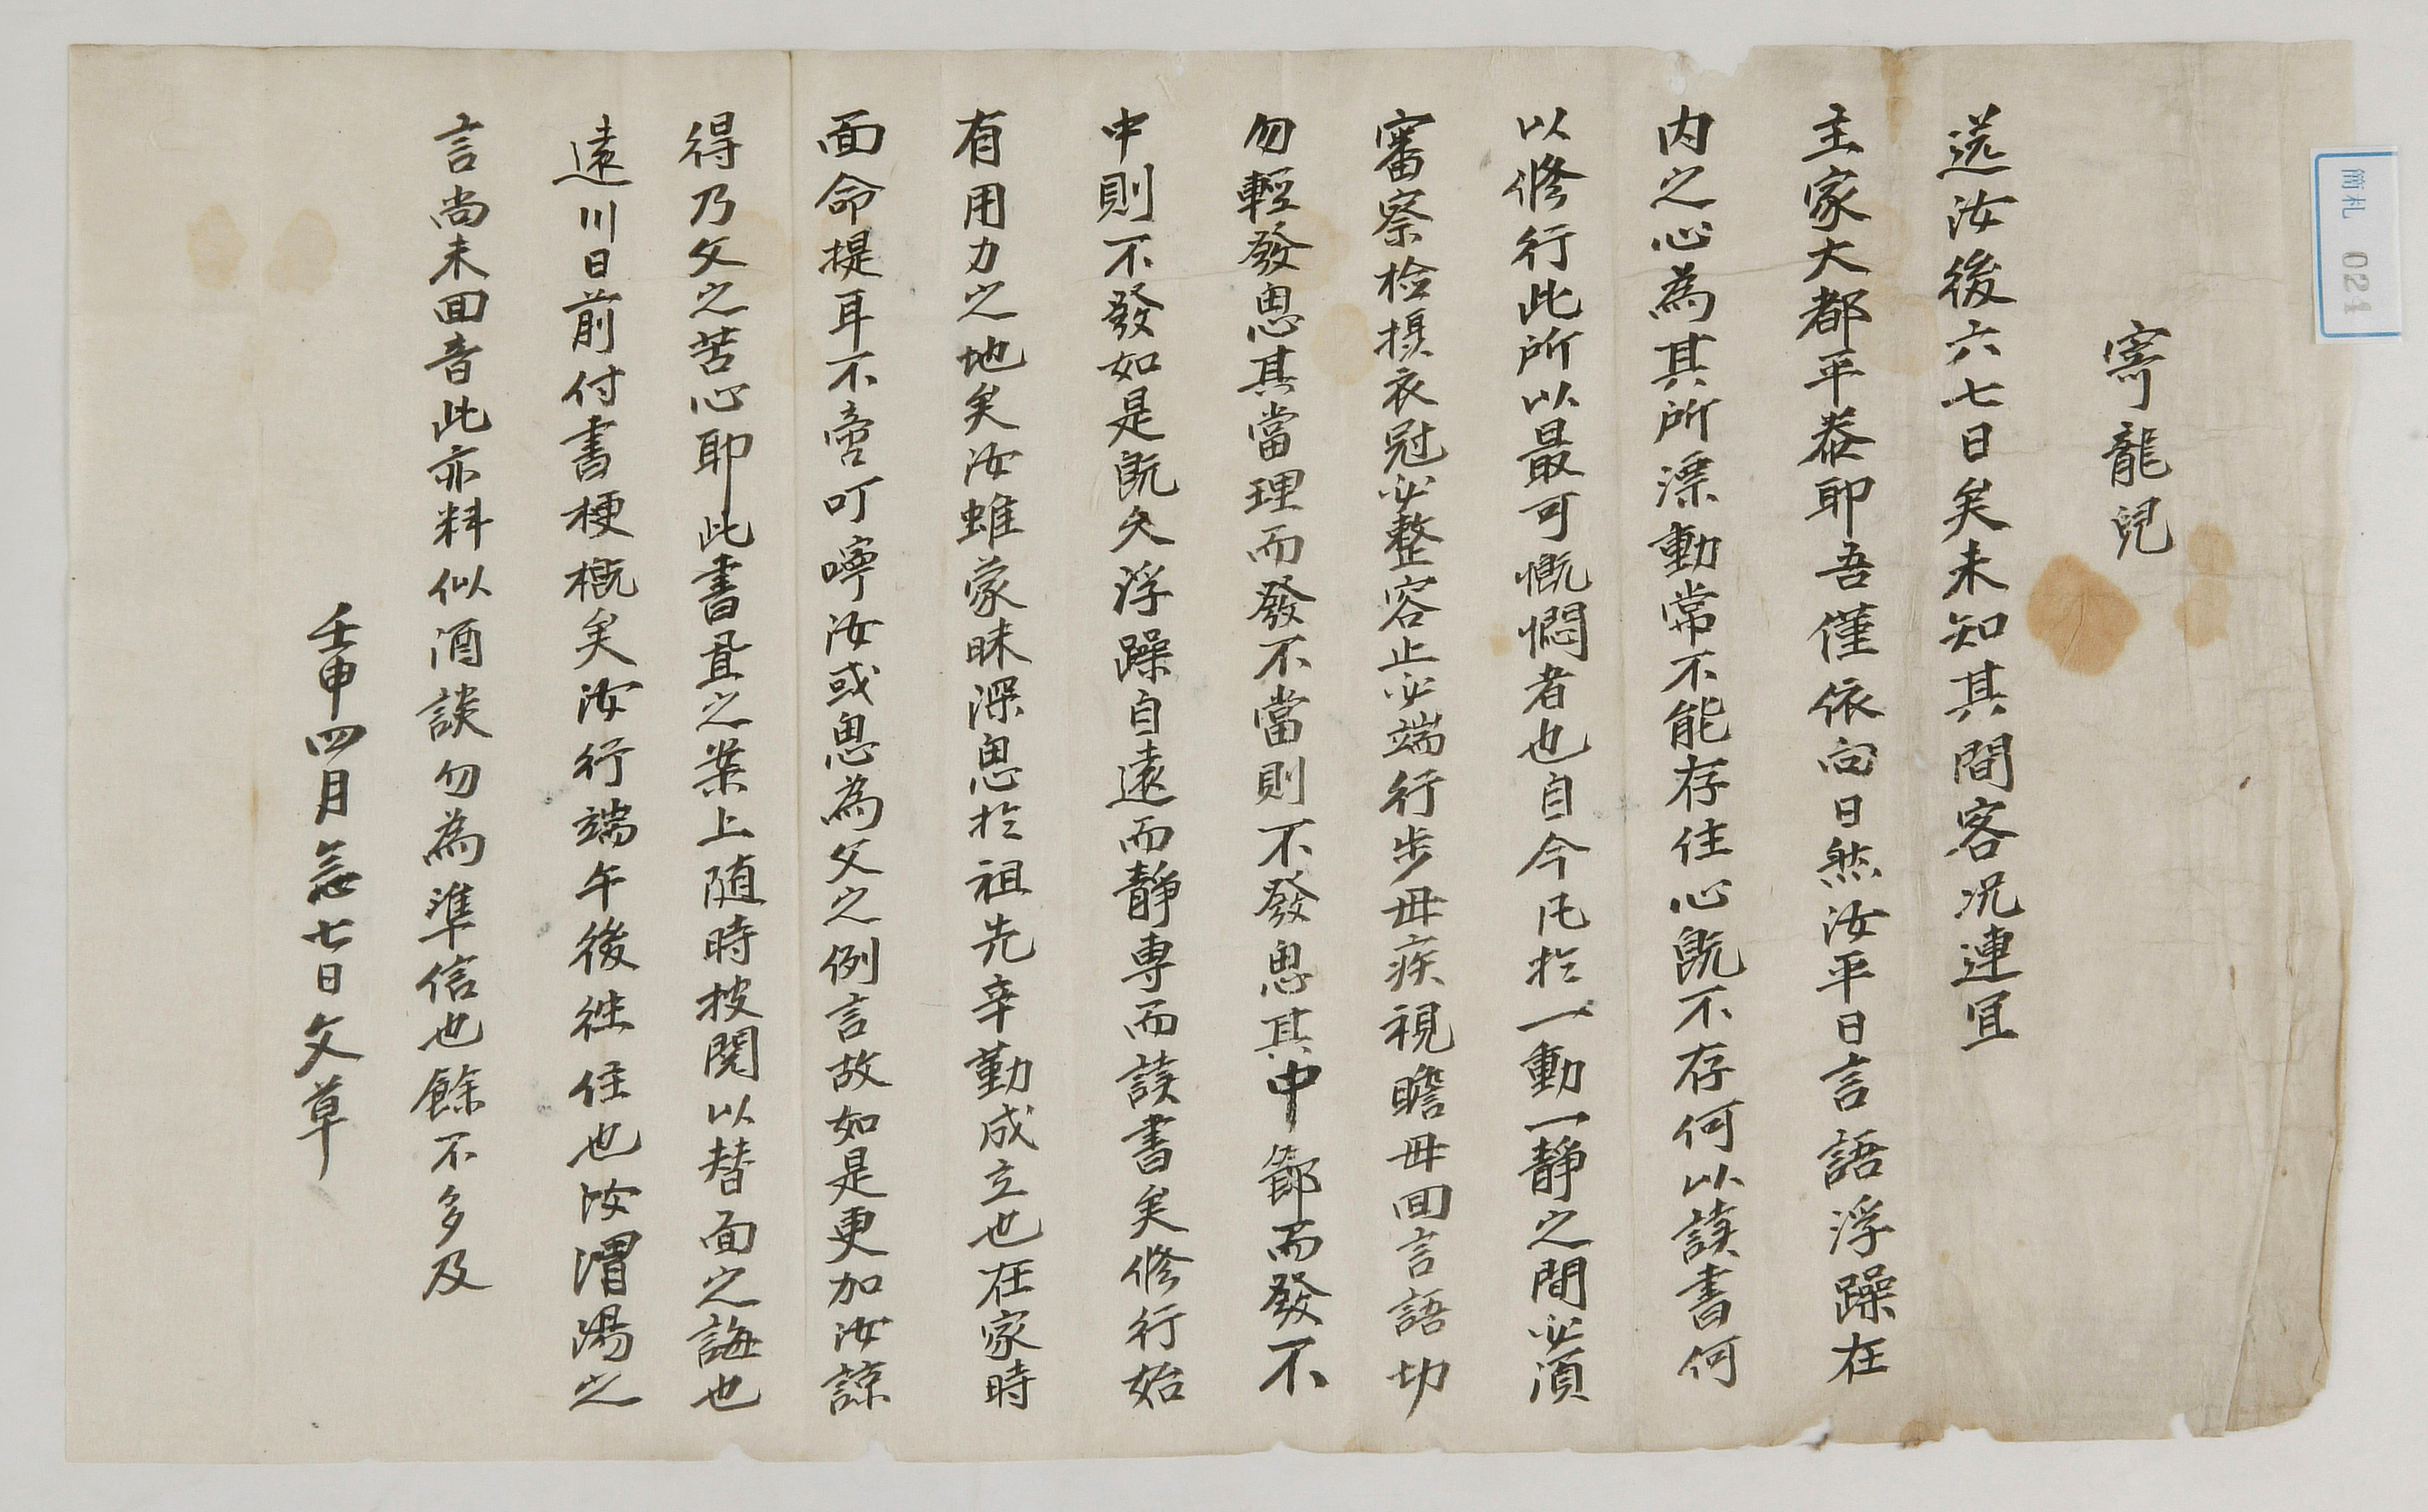 寄龍兒
送汝後六七日矣未知其間客况連冝
主家大都平泰耶吾僅依向日然汝平日言語浮躁在
内之心為其所漂動常不能存住心既不存何以讀書何
以修行此所以最可慨憫者也自今凡於一動一靜之間必須
審察檢攝衣冠必整容止必端行步毋疾視瞻毋回言語切
勿輕發思其當理而發不當則不發思其中節而發不
中則不發如是既久浮躁自遠而靜專而讀書矣修行始
有用力之地矣汝雖蒙昧深思於祖先辛勤成立也在家時
面命提耳不啻叮嚀汝或思為父之例言故如是更加汝諒
得乃父之苦心耶此書置之案上随時披閱以替面之誨也
遠川日前付書梗槪矣汝行端午後徃住也汝渭陽之
言尚未回音此亦料似酒談勿為準信也餘不多及
壬申四月念七日父草
簡札 021